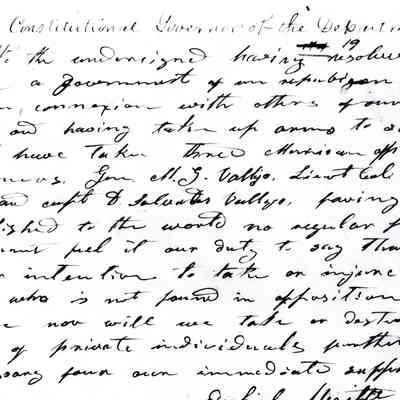 Constitutional Governor of the Departm
the undersigned having resolve
a government of on republican
connexion with others of our
and having taken up arms to s
have taken three Mexican off
Gen. M. G. Vallejo, Lieut Col
and capt D. Salvador Vallejo, having
lished to the world no regular
feel it our duty to say that
intention to take or injure
who is not found in opposition
nor will we take or destroy
of private individuals further
for our own immediate suppo